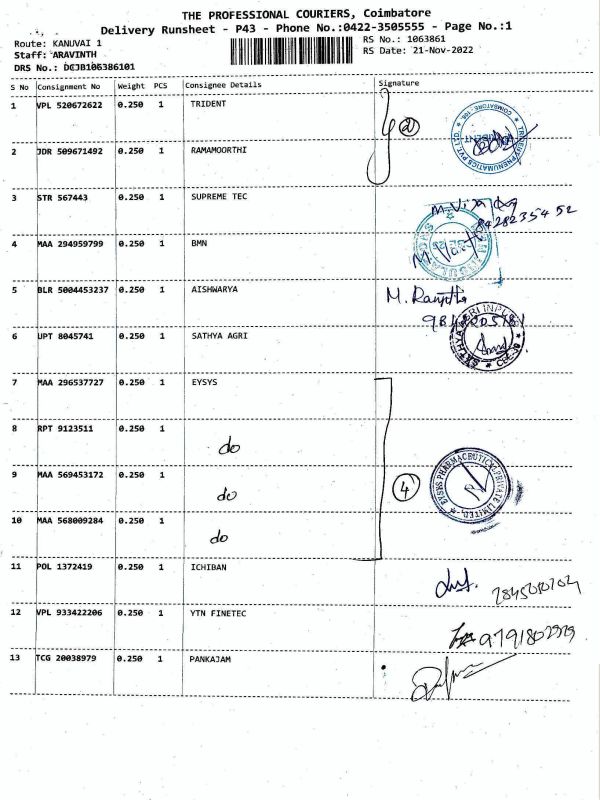 THE PROFESSIONAL COURIERS, Coimbatore
Delivery Runsheet - P43 - Phone No.:0422-3505555 - Page No.:1
Route: KANUVAI 1 RS No.: 1063861
Staff: ARAVINTH RS Date: 21-Nov-2022
DRS No.: DCJB106386101
S No Consignment No Weight PCS Consignee Details Signature
1 VPL 520672622 0.250 1 TRIDENT
2
2 JDR 509671492 0.250 1 RAMAMOORTHI
3 STR 567443 0.250 1 SUPREME TEC
8428235452
4 MAA 294959799 0.250 1 BMN
5 BLR 5004453237 0.250 1 AISHWARYA
M. Ranjith
6 UPT 8045741 0.250 1 SATHYA AGRI
7 MAA 296537727 0.250 1 EYSYS
8 RPT 9123511 0.250 1 do
9 MAA 569453172 0.250 1 do
4
EYSYS PHARMACEUTICAL PRIVATE LIMITED
10 MAA 568009284 0.250 1 do
11 POL 1372419 0.250 1 ICHIBAN
12 VPL 933422206 0.250 1 YTN FINETEC
9791802929
13 TCG 20038979 0.250 1 PANKAJAM